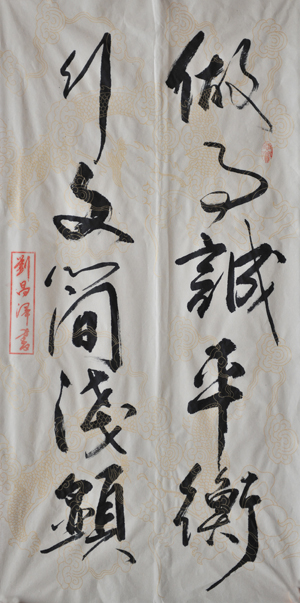 做事誠平衡
行文簡淺顯
劉昌 書